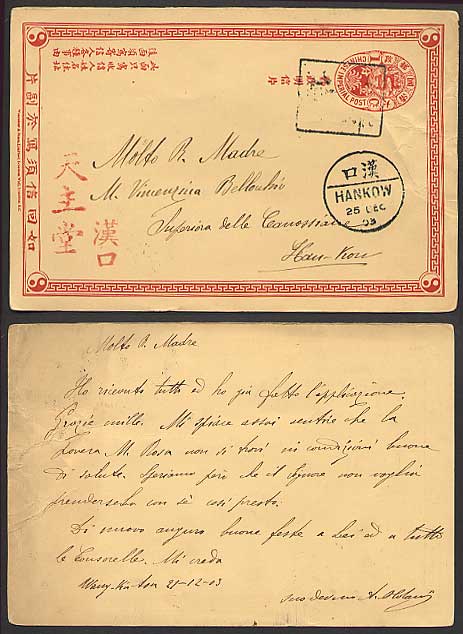 CHINESE IMPERIAL POST
此面只寫收信人姓名住址
片副於寫須信回如
天主堂
漢口
Molto R. Madre
M. Vincenzina
Superiora delle Canossiane
Han-Kow
漢口
HANKOW
25 DEC
03
Molto R. Madre
Ho ricevuto tutto ed ho già fatto l'applicazione.
Grazie mille. Mi spiace assai sentire che la
povera M. Rosa non si trovi in condizioni buone
di salute. Speriamo però che il Signore non voglia
prendersela con sè così presto.
Di nuovo auguro buone feste a Lei ed a tutte
le Consorelle. Mi creda
21-12-03
suo dev.mo A.